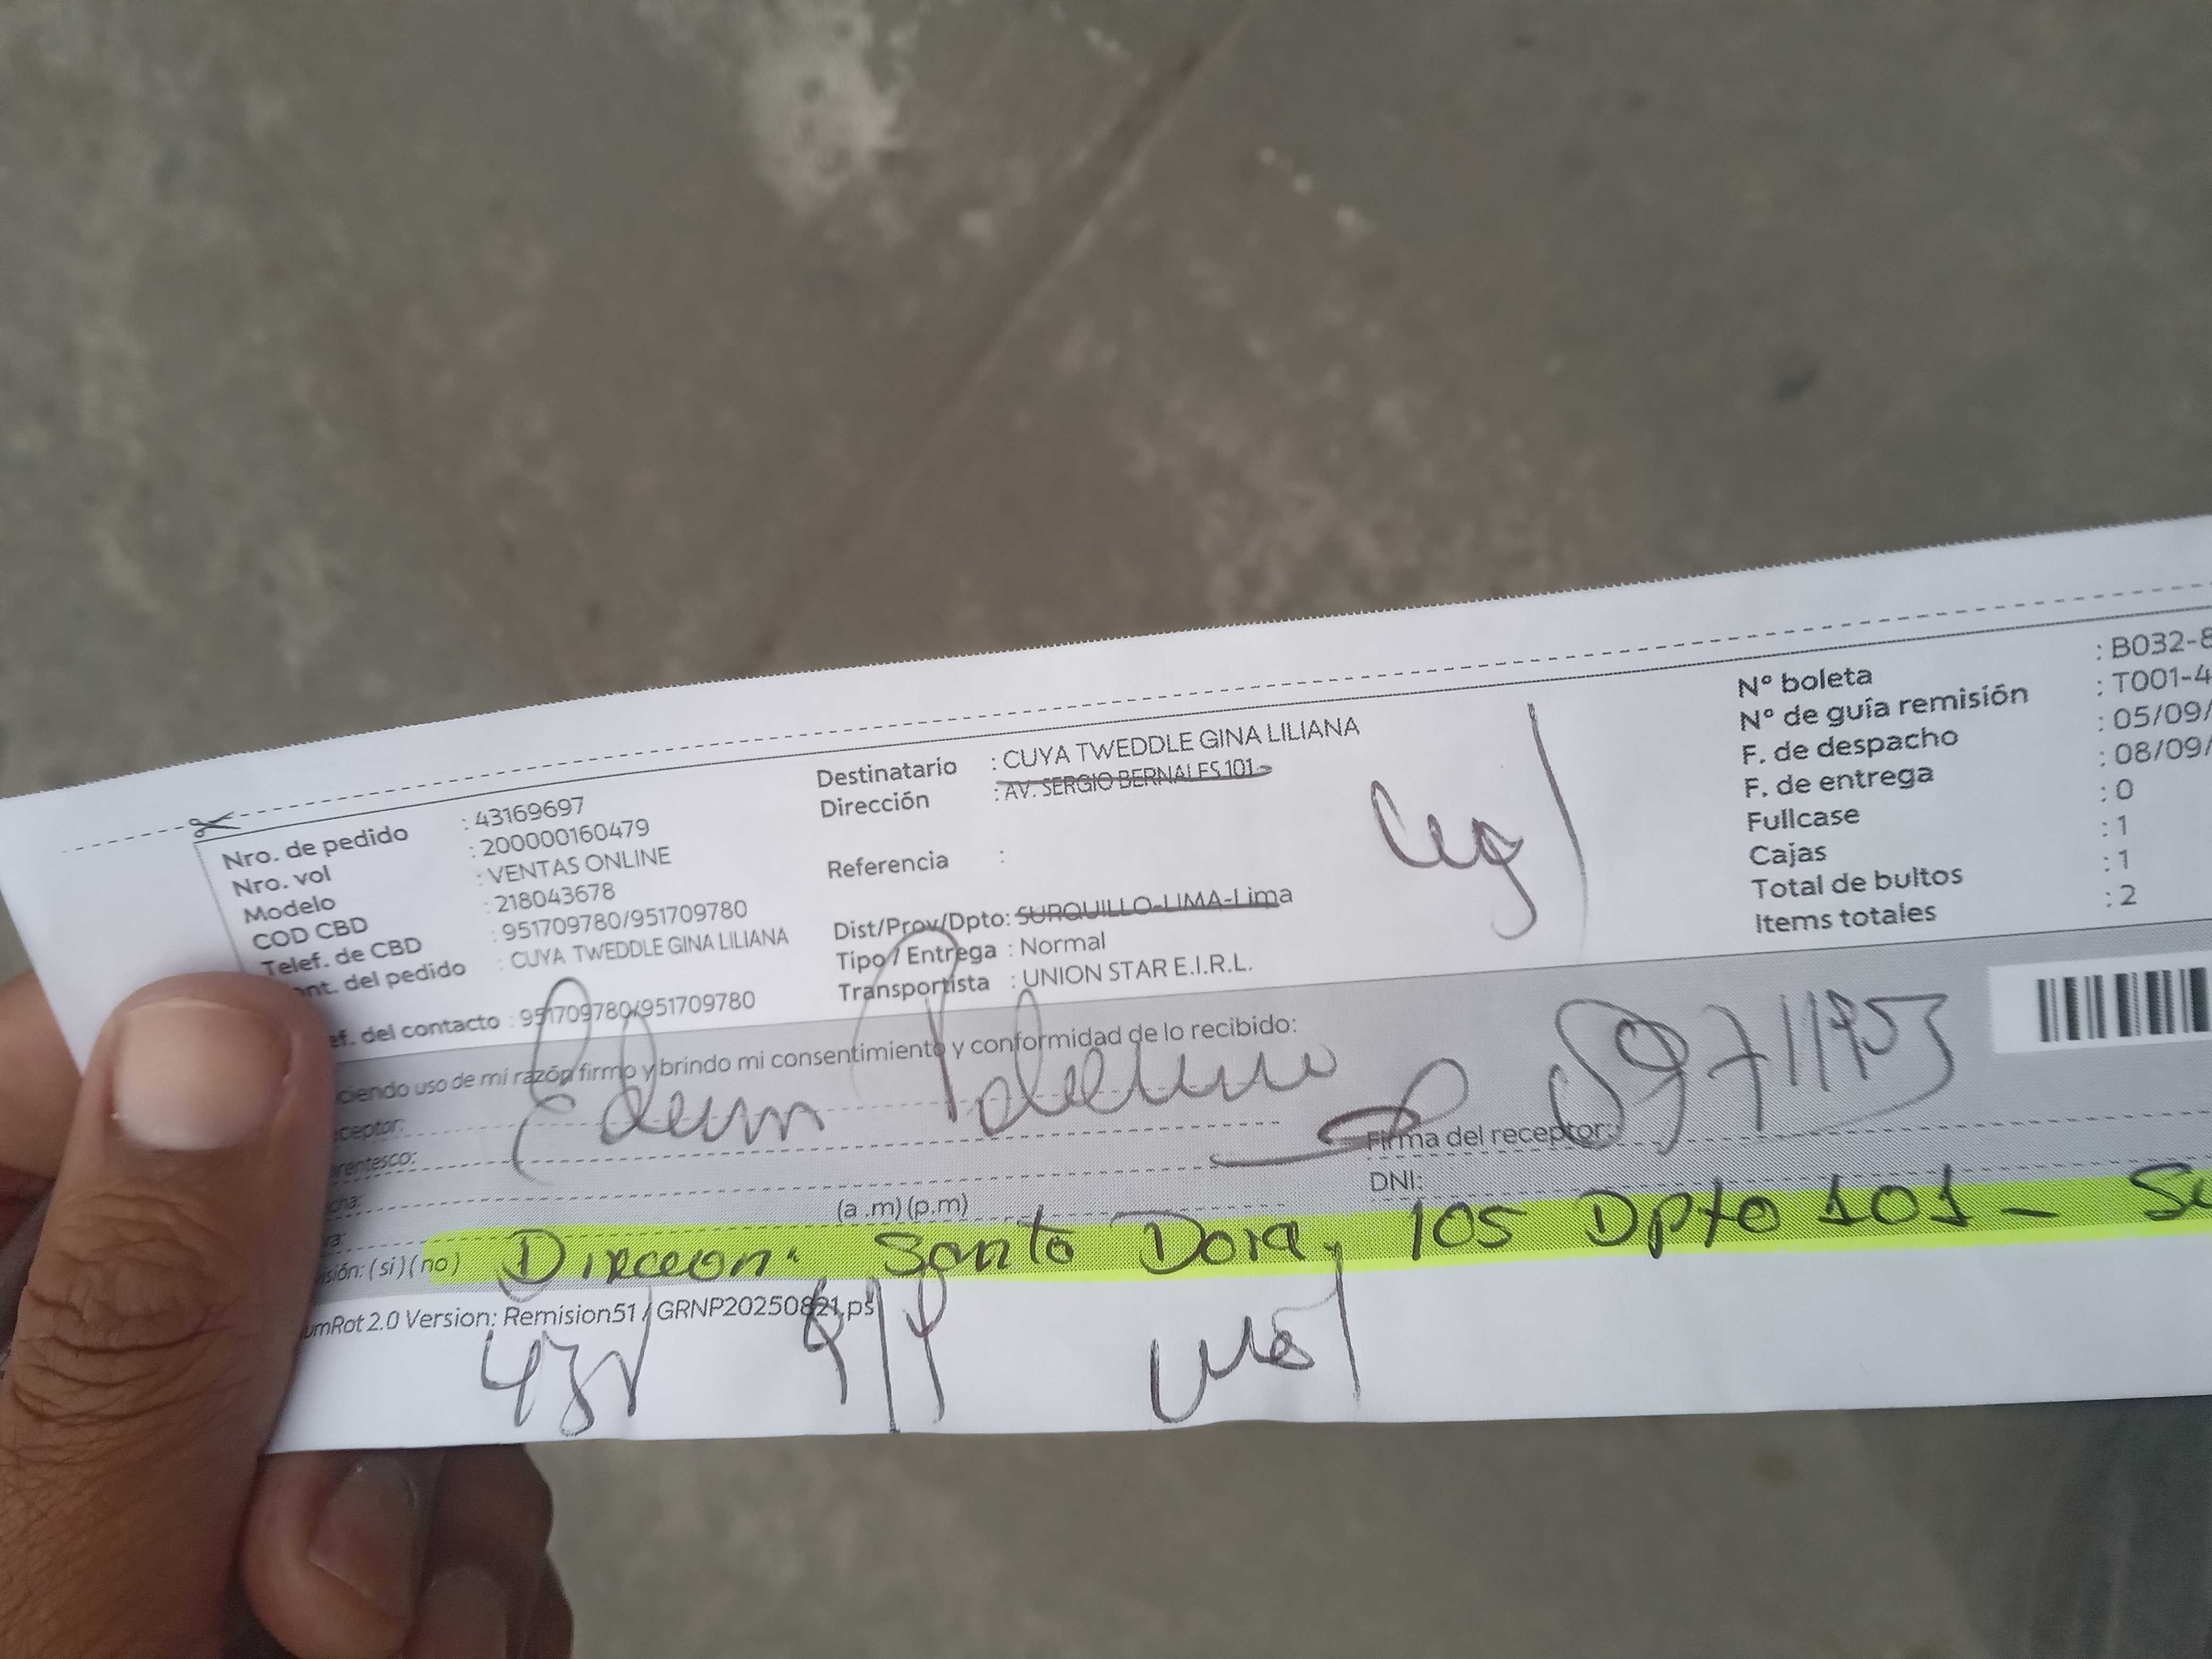 Nro. de pedido : 43169697
Nro. vol : 200000160479
Modelo : VENTAS ONLINE
COD CBD : 218043678
Telef. de CBD : 951709780/951709780
nt. del pedido : CUYA TWEDDLE GINA LILIANA
ef. del contacto : 951709780/951709780
Destinatario : CUYA TWEDDLE GINA LILIANA
Dirección : AV. SERGIO BERNALES 101
Referencia :
Dist/Prov/Dpto: SURQUILLO-LIMA-Lima
Tipo / Entrega : Normal
Transportista : UNION STAR E.I.R.L.
N° boleta : B032-8
N° de guía remisión : T001-4
F. de despacho : 05/09/
F. de entrega : 08/09/
Fullcase : 0
Cajas : 1
Total de bultos : 1
Items totales : 2
ciendo uso de mi razón firmo y brindo mi consentimiento y conformidad de lo recibido:
ceptor:
rentesco:
cha:
ra: (a .m) (p.m)
Firma del receptor:
DNI:
isión: (si) (no)
Direccon: Santa Dora, 105 Dpto 101 - Su
umRot 2.0 Version: Remision51 / GRNP20250821.ps